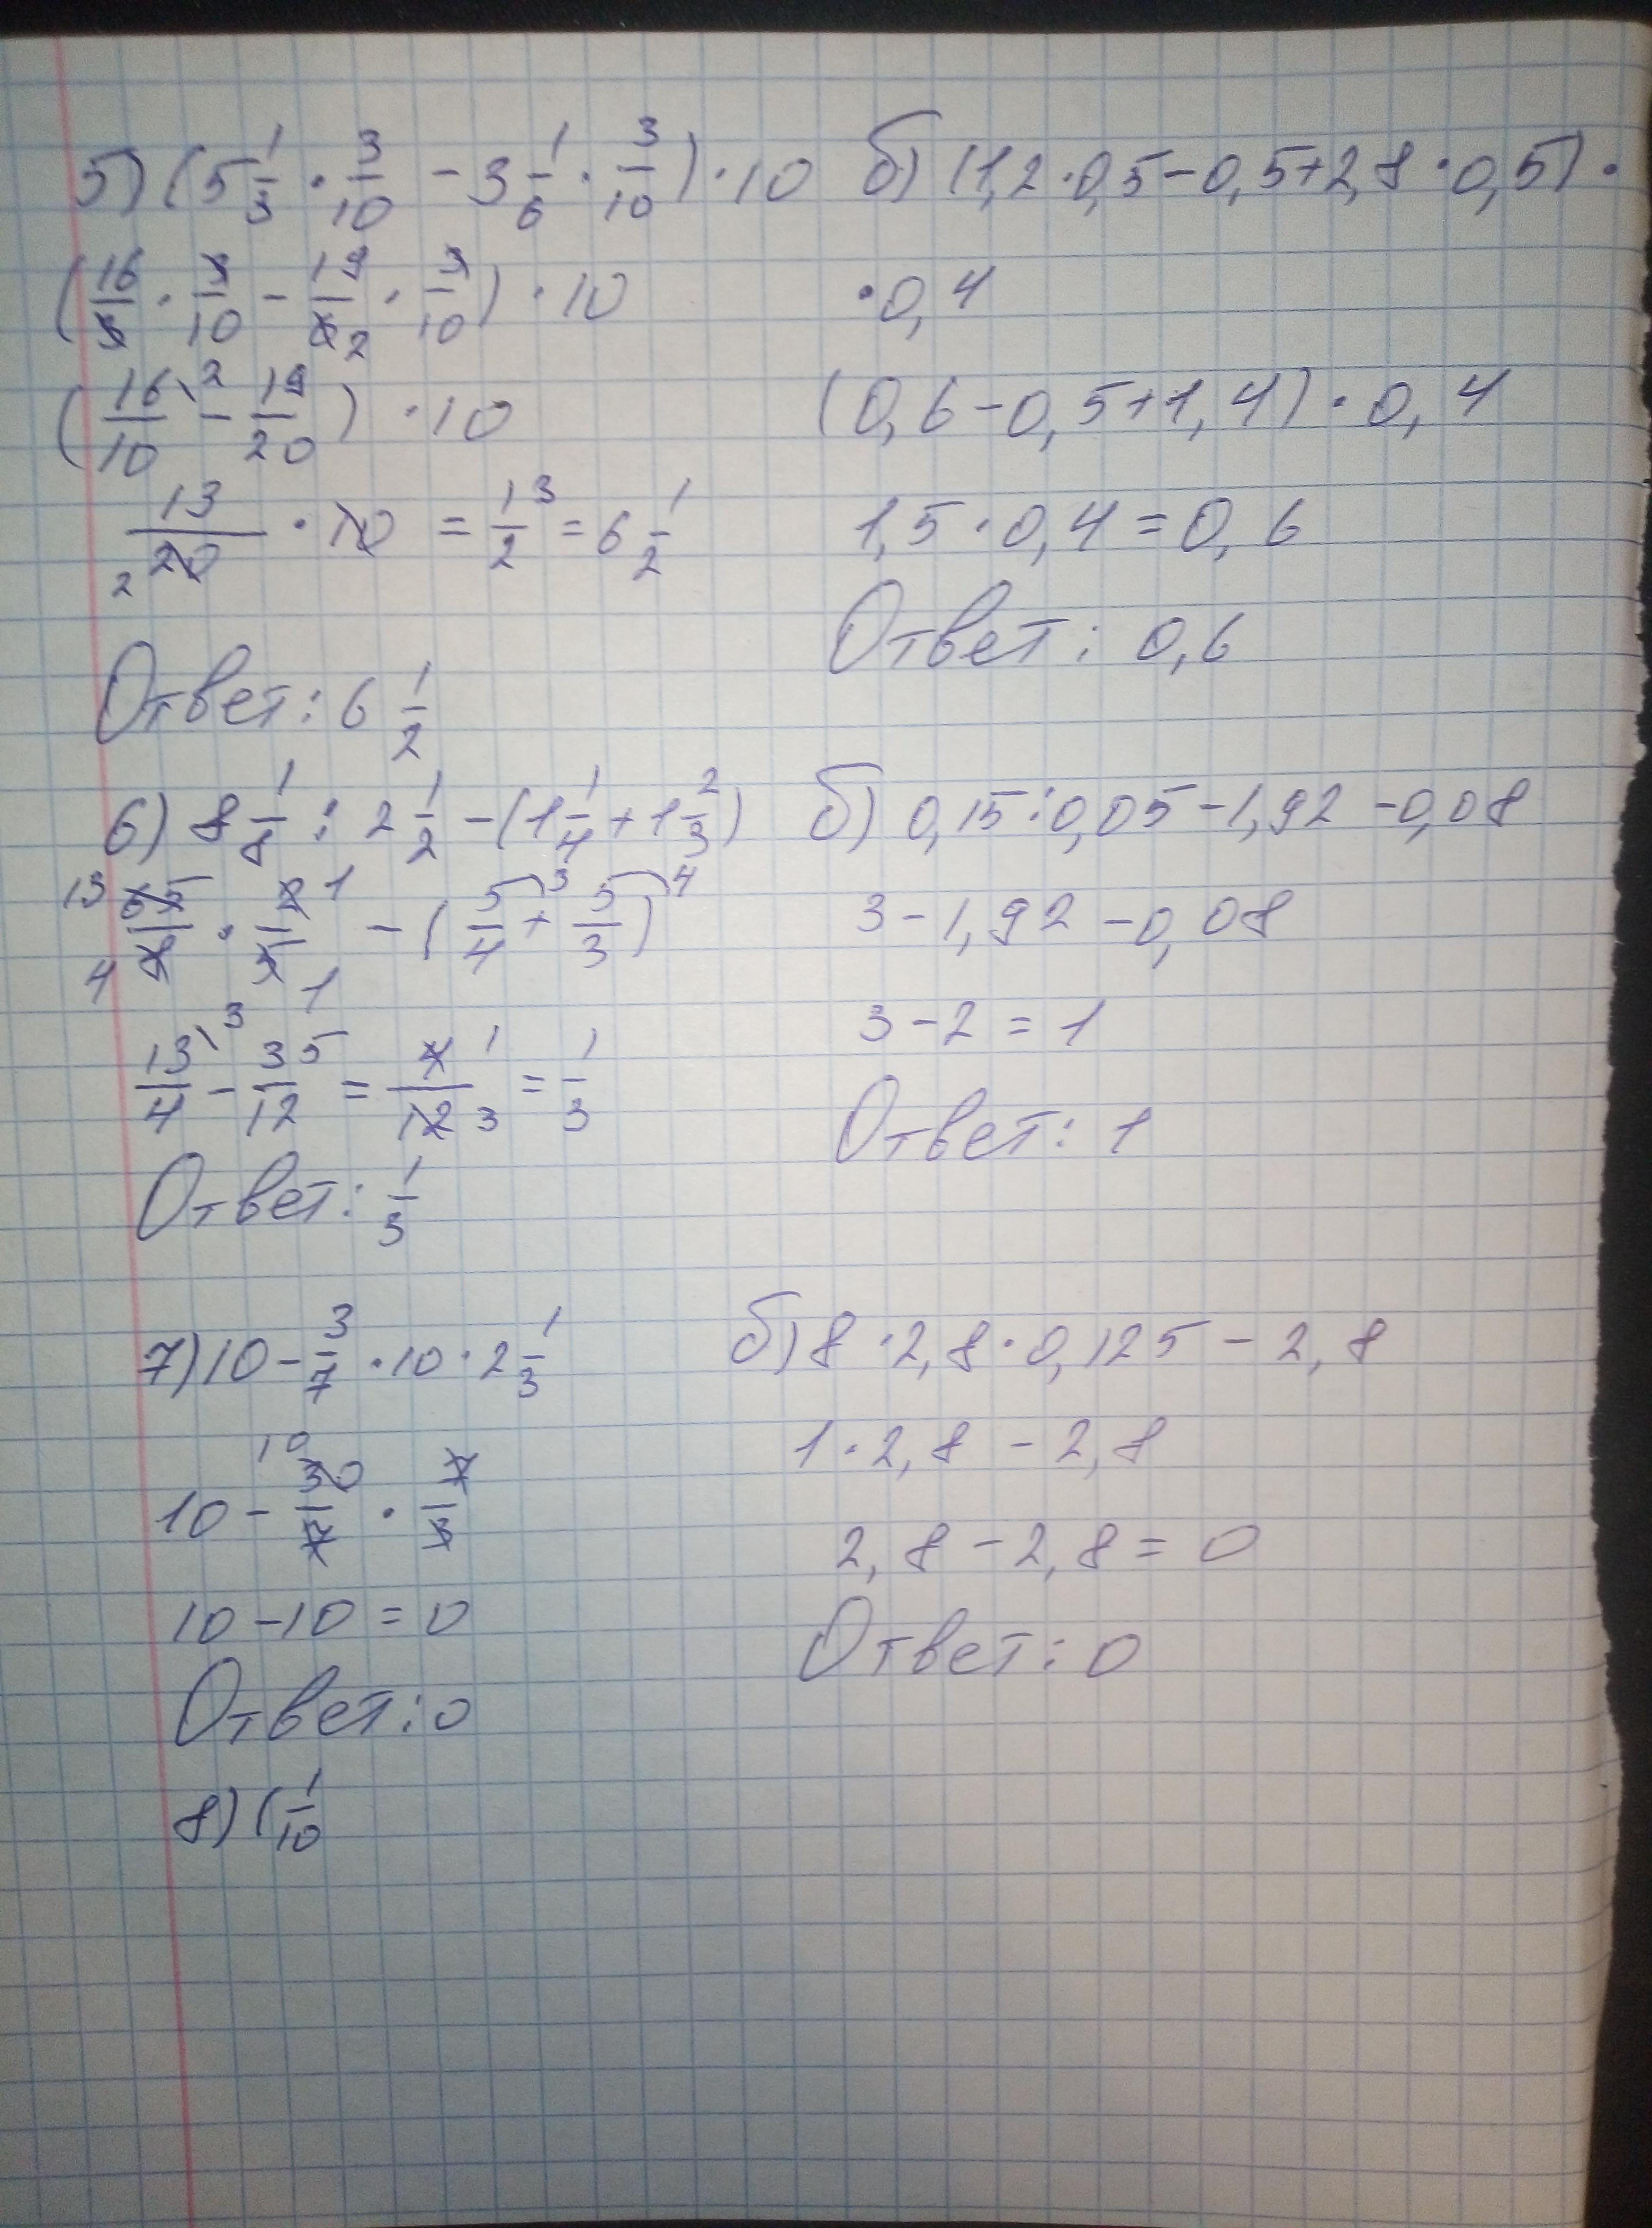 5) (5 1/3 · 3/10 - 3 1/6 · 3/10) · 10
(16/3 · 3/10 - 19/6 2 · 3/10) · 10
(16/10 \2 - 19/20) · 10
13/20 2 · 10 = 13/2 = 6 1/2
Ответ: 6 1/2
б) (1,2 · 0,5 - 0,5 + 2,8 · 0,5) ·
· 0,4
(0,6 - 0,5 + 1,4) · 0,4
1,5 · 0,4 = 0,6
Ответ: 0,6
6) 8 1/8 : 2 1/2 - (1 1/4 + 1 2/3)
13 65/8 4 · 2 1/5 1 - (5/4 3 + 5/3 4)
13/4 \3 - 35/12 = 4 1/12 3 = 1/3
Ответ: 1/3
б) 0,15 : 0,05 - 1,92 - 0,08
3 - 1,92 - 0,08
3 - 2 = 1
Ответ: 1
7) 10 - 3/7 · 10 · 2 1/3
10 - 10 30/7 · 7/3
10 - 10 = 0
Ответ: 0
б) 8 · 2,8 · 0,125 - 2,8
1 · 2,8 - 2,8
2,8 - 2,8 = 0
Ответ: 0
8) (1/10